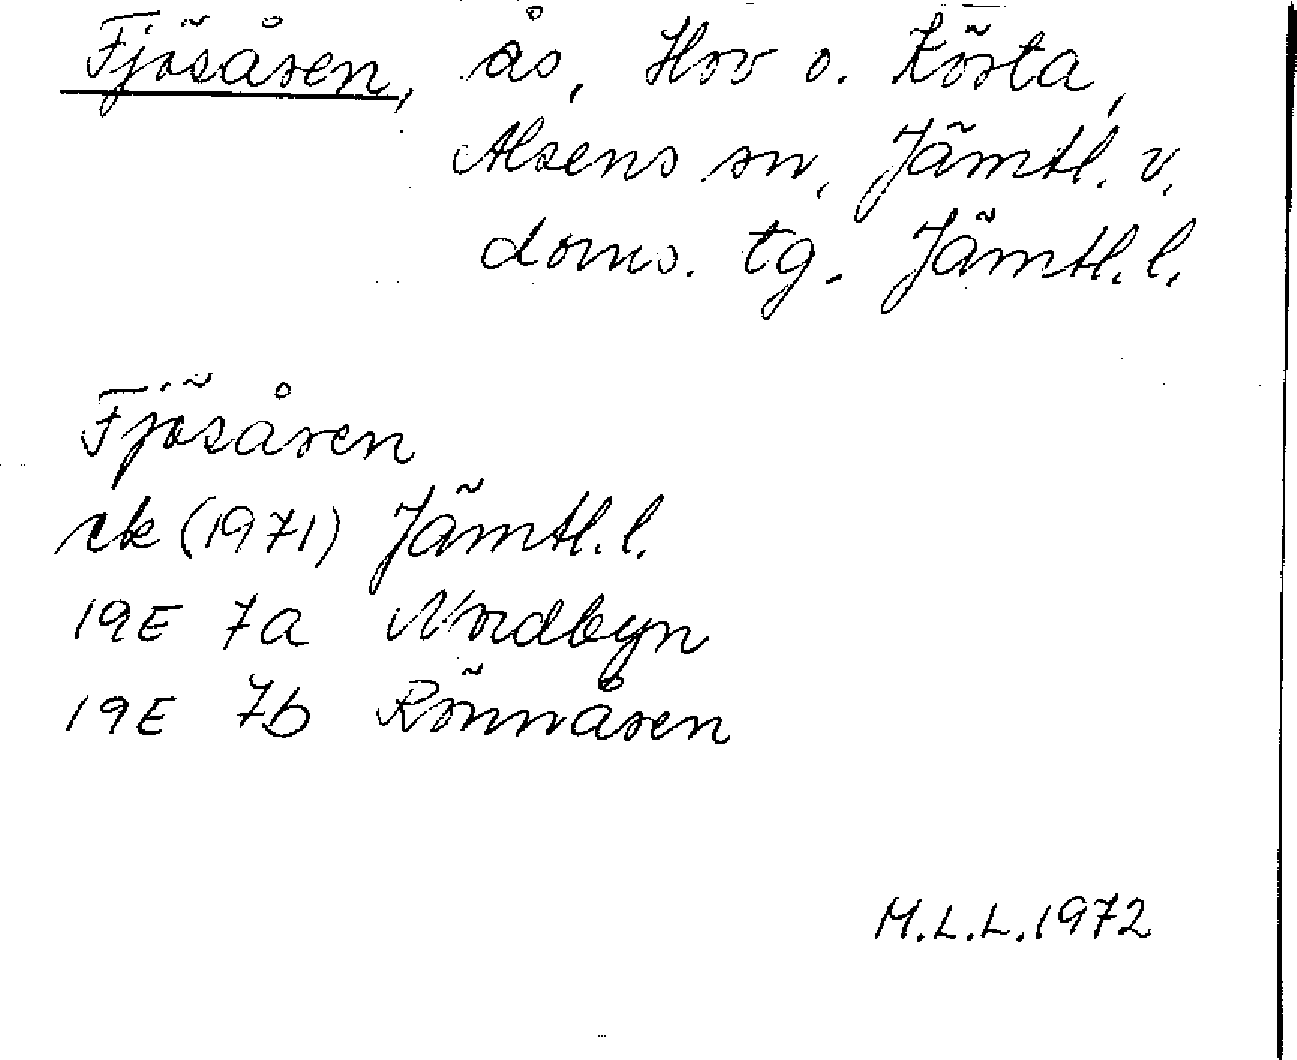 Fjösåsen, ås, Hov o. Kösta,
Alsens sn, Jämtl. v.
doms. tg. Jämtl. l.
Fjösåsen
rk (1971) Jämtl. l.
19E 7a Nordbyn
19E 7b Rönnåsen
M.L.L. 1972